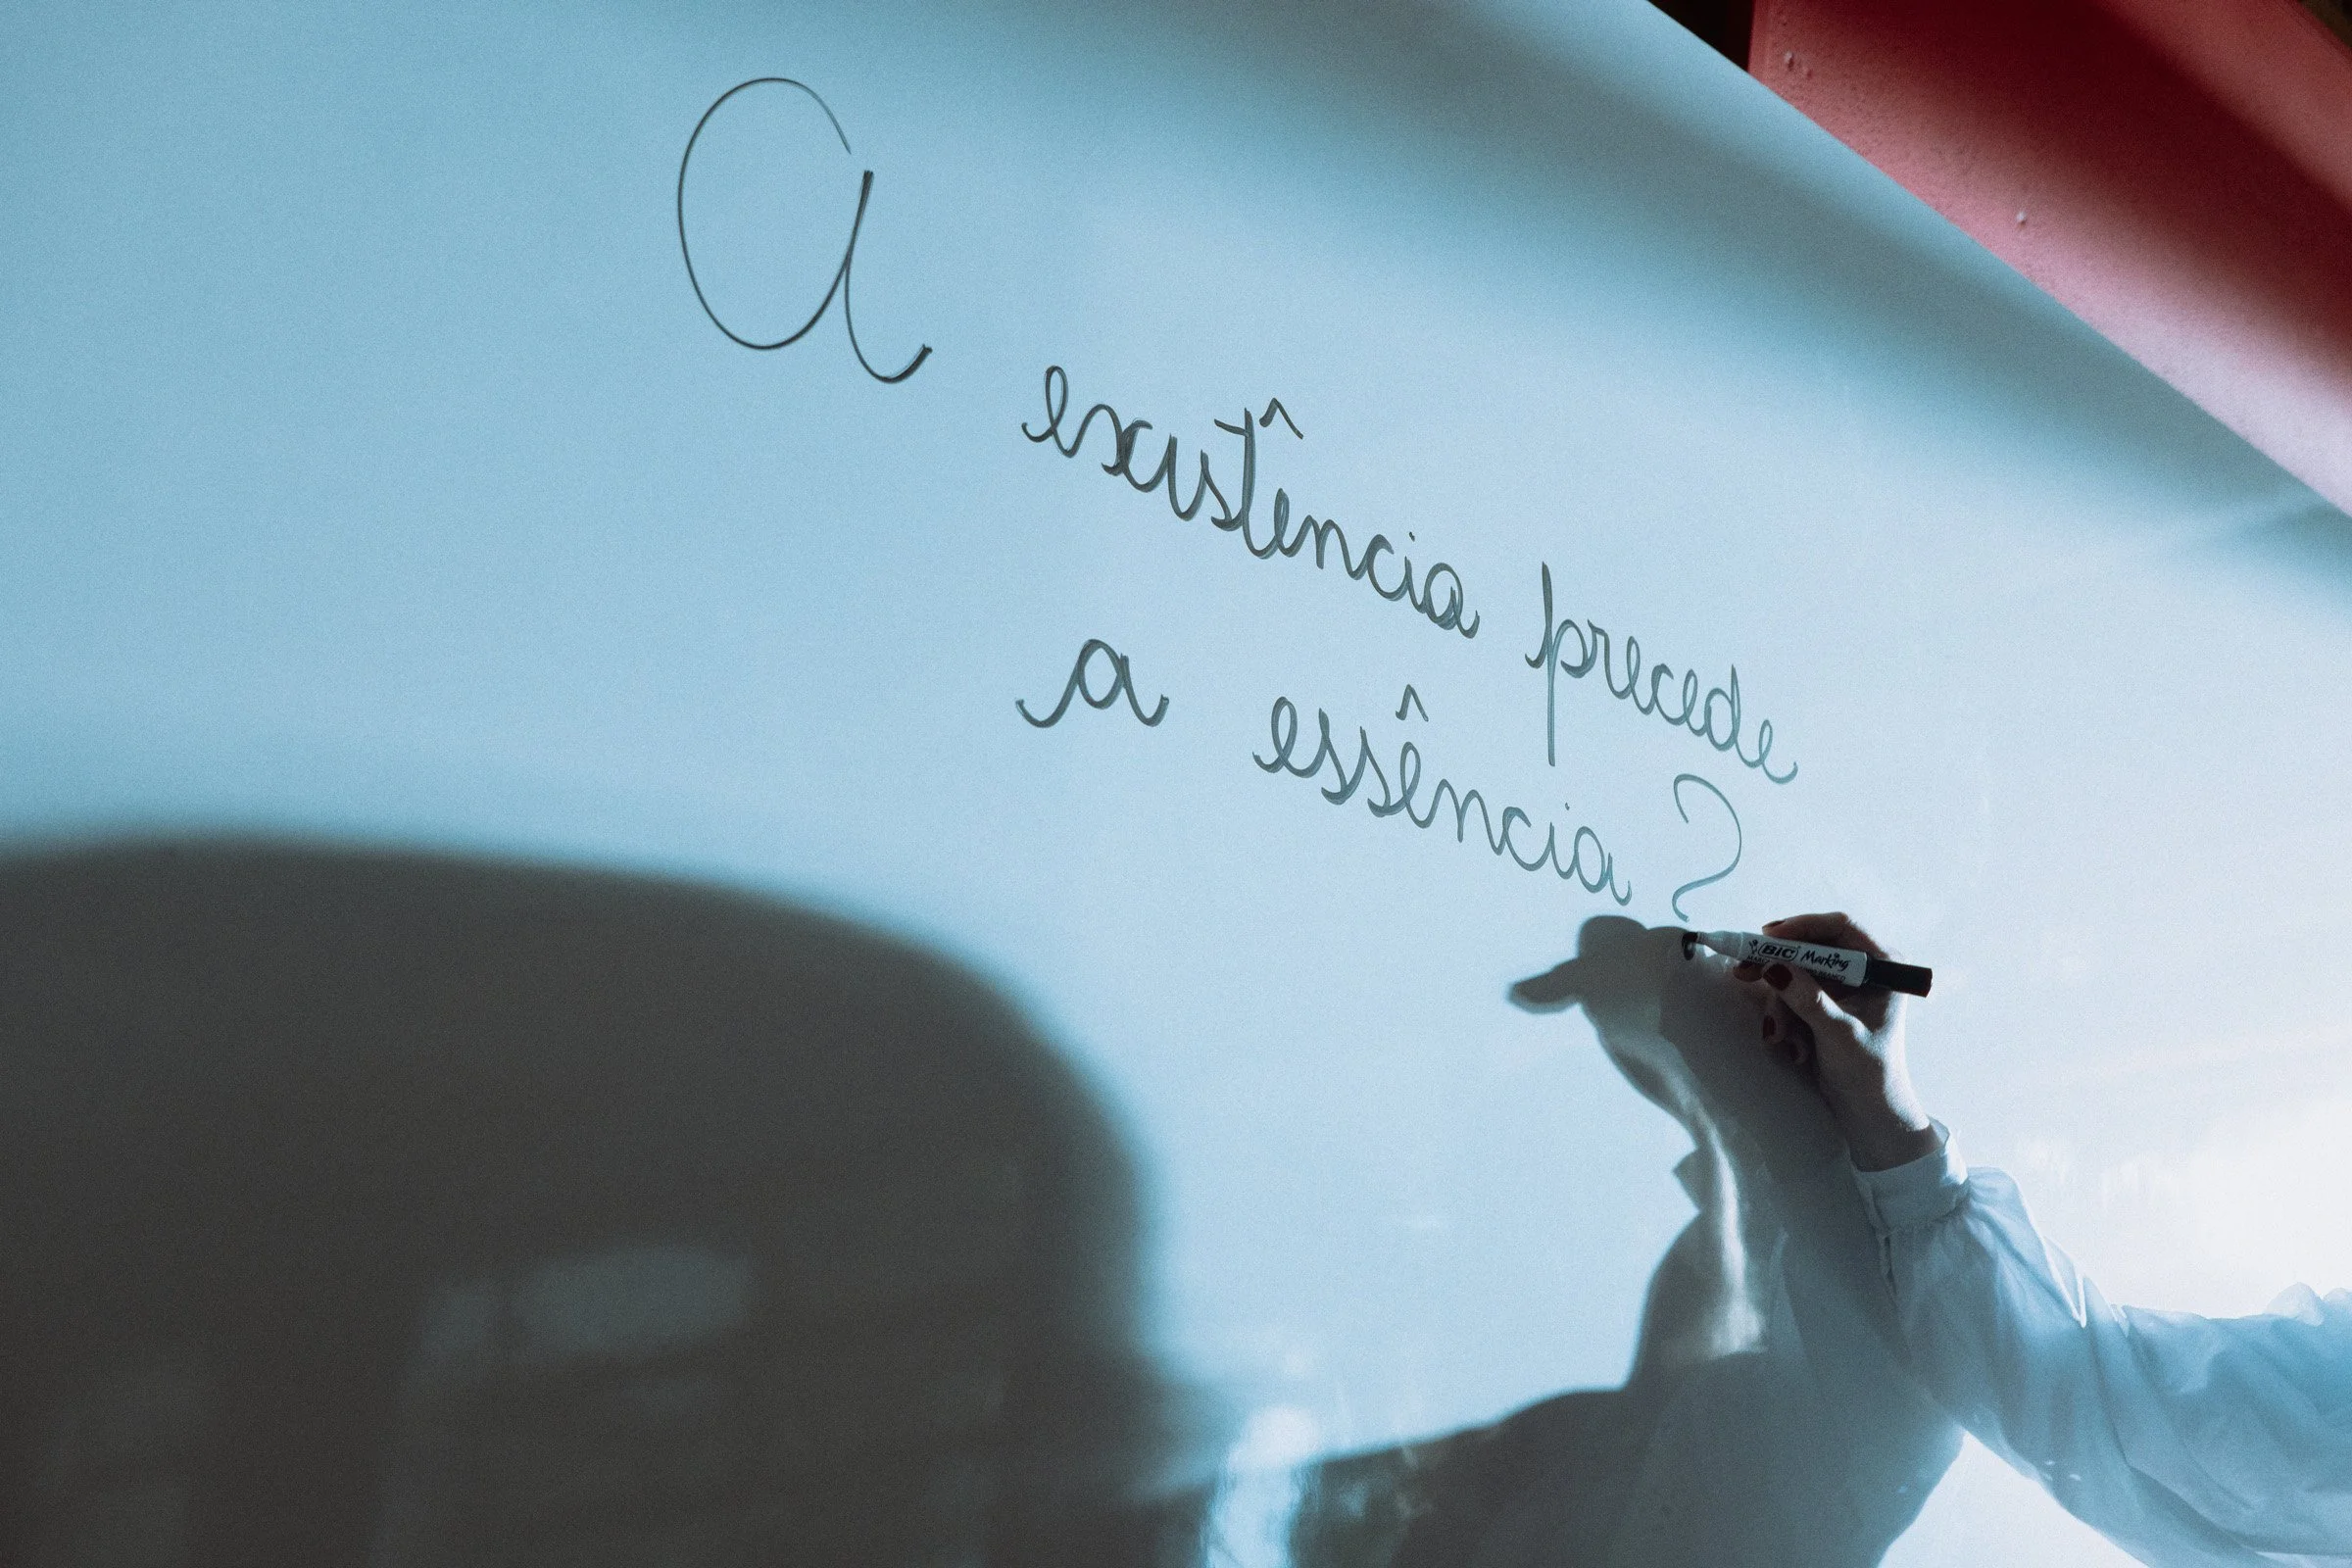 A existência precede
a essência?
BIC Marking